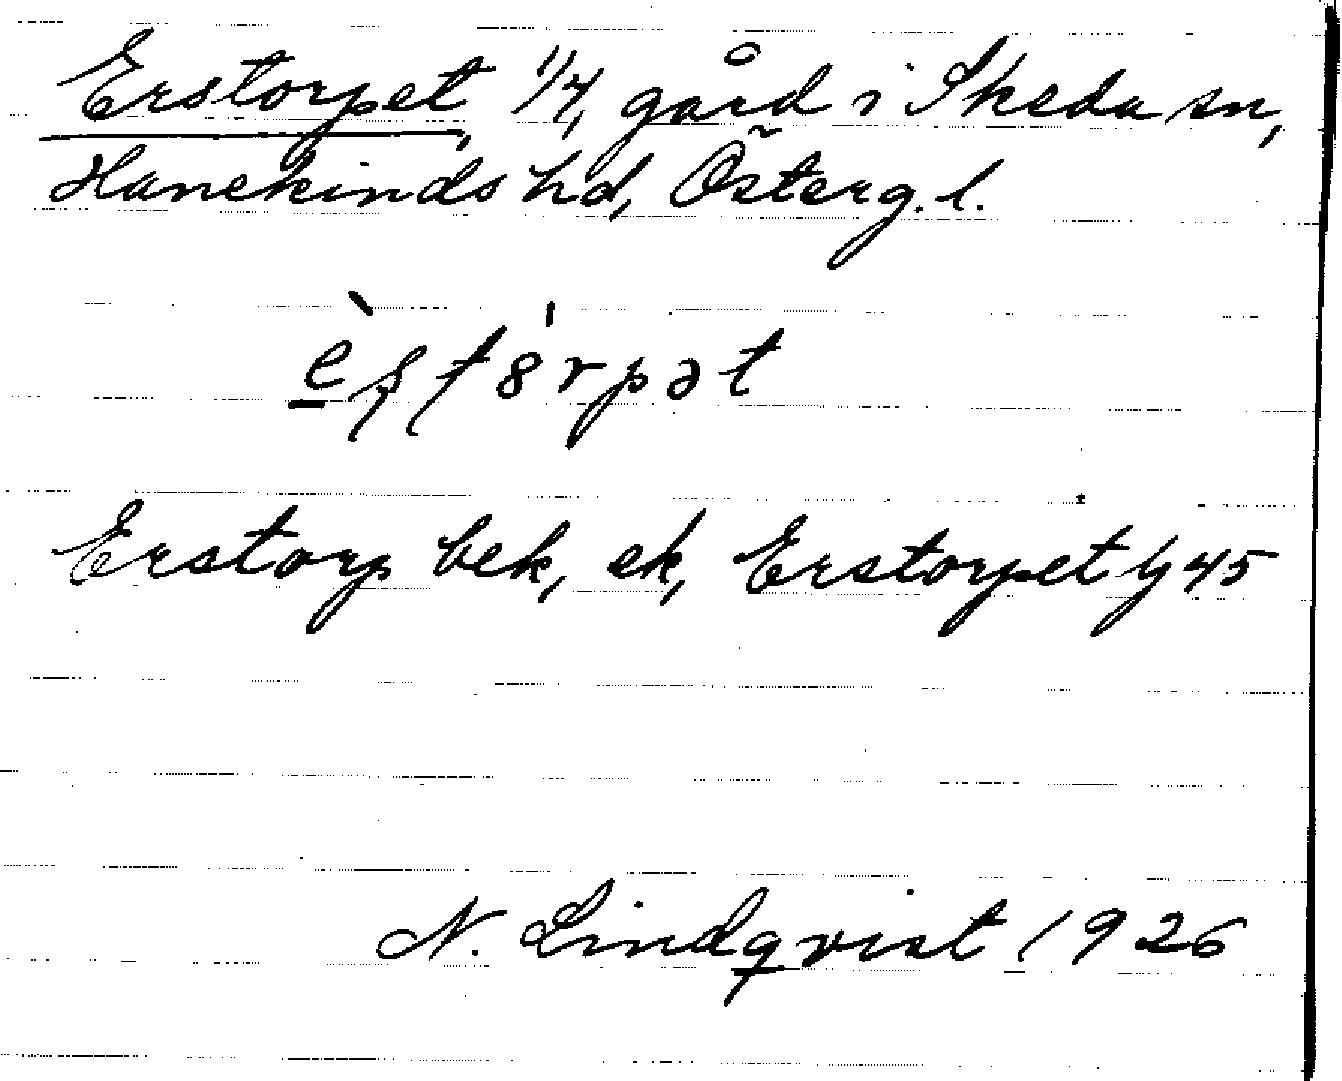 Erstorpet, 1/4, gård i Skeda sn,
Hanekinds hd, Österg. l.
Erstorp bek, ek, Erstorpet Jj 45
N. Lindqvist 1926